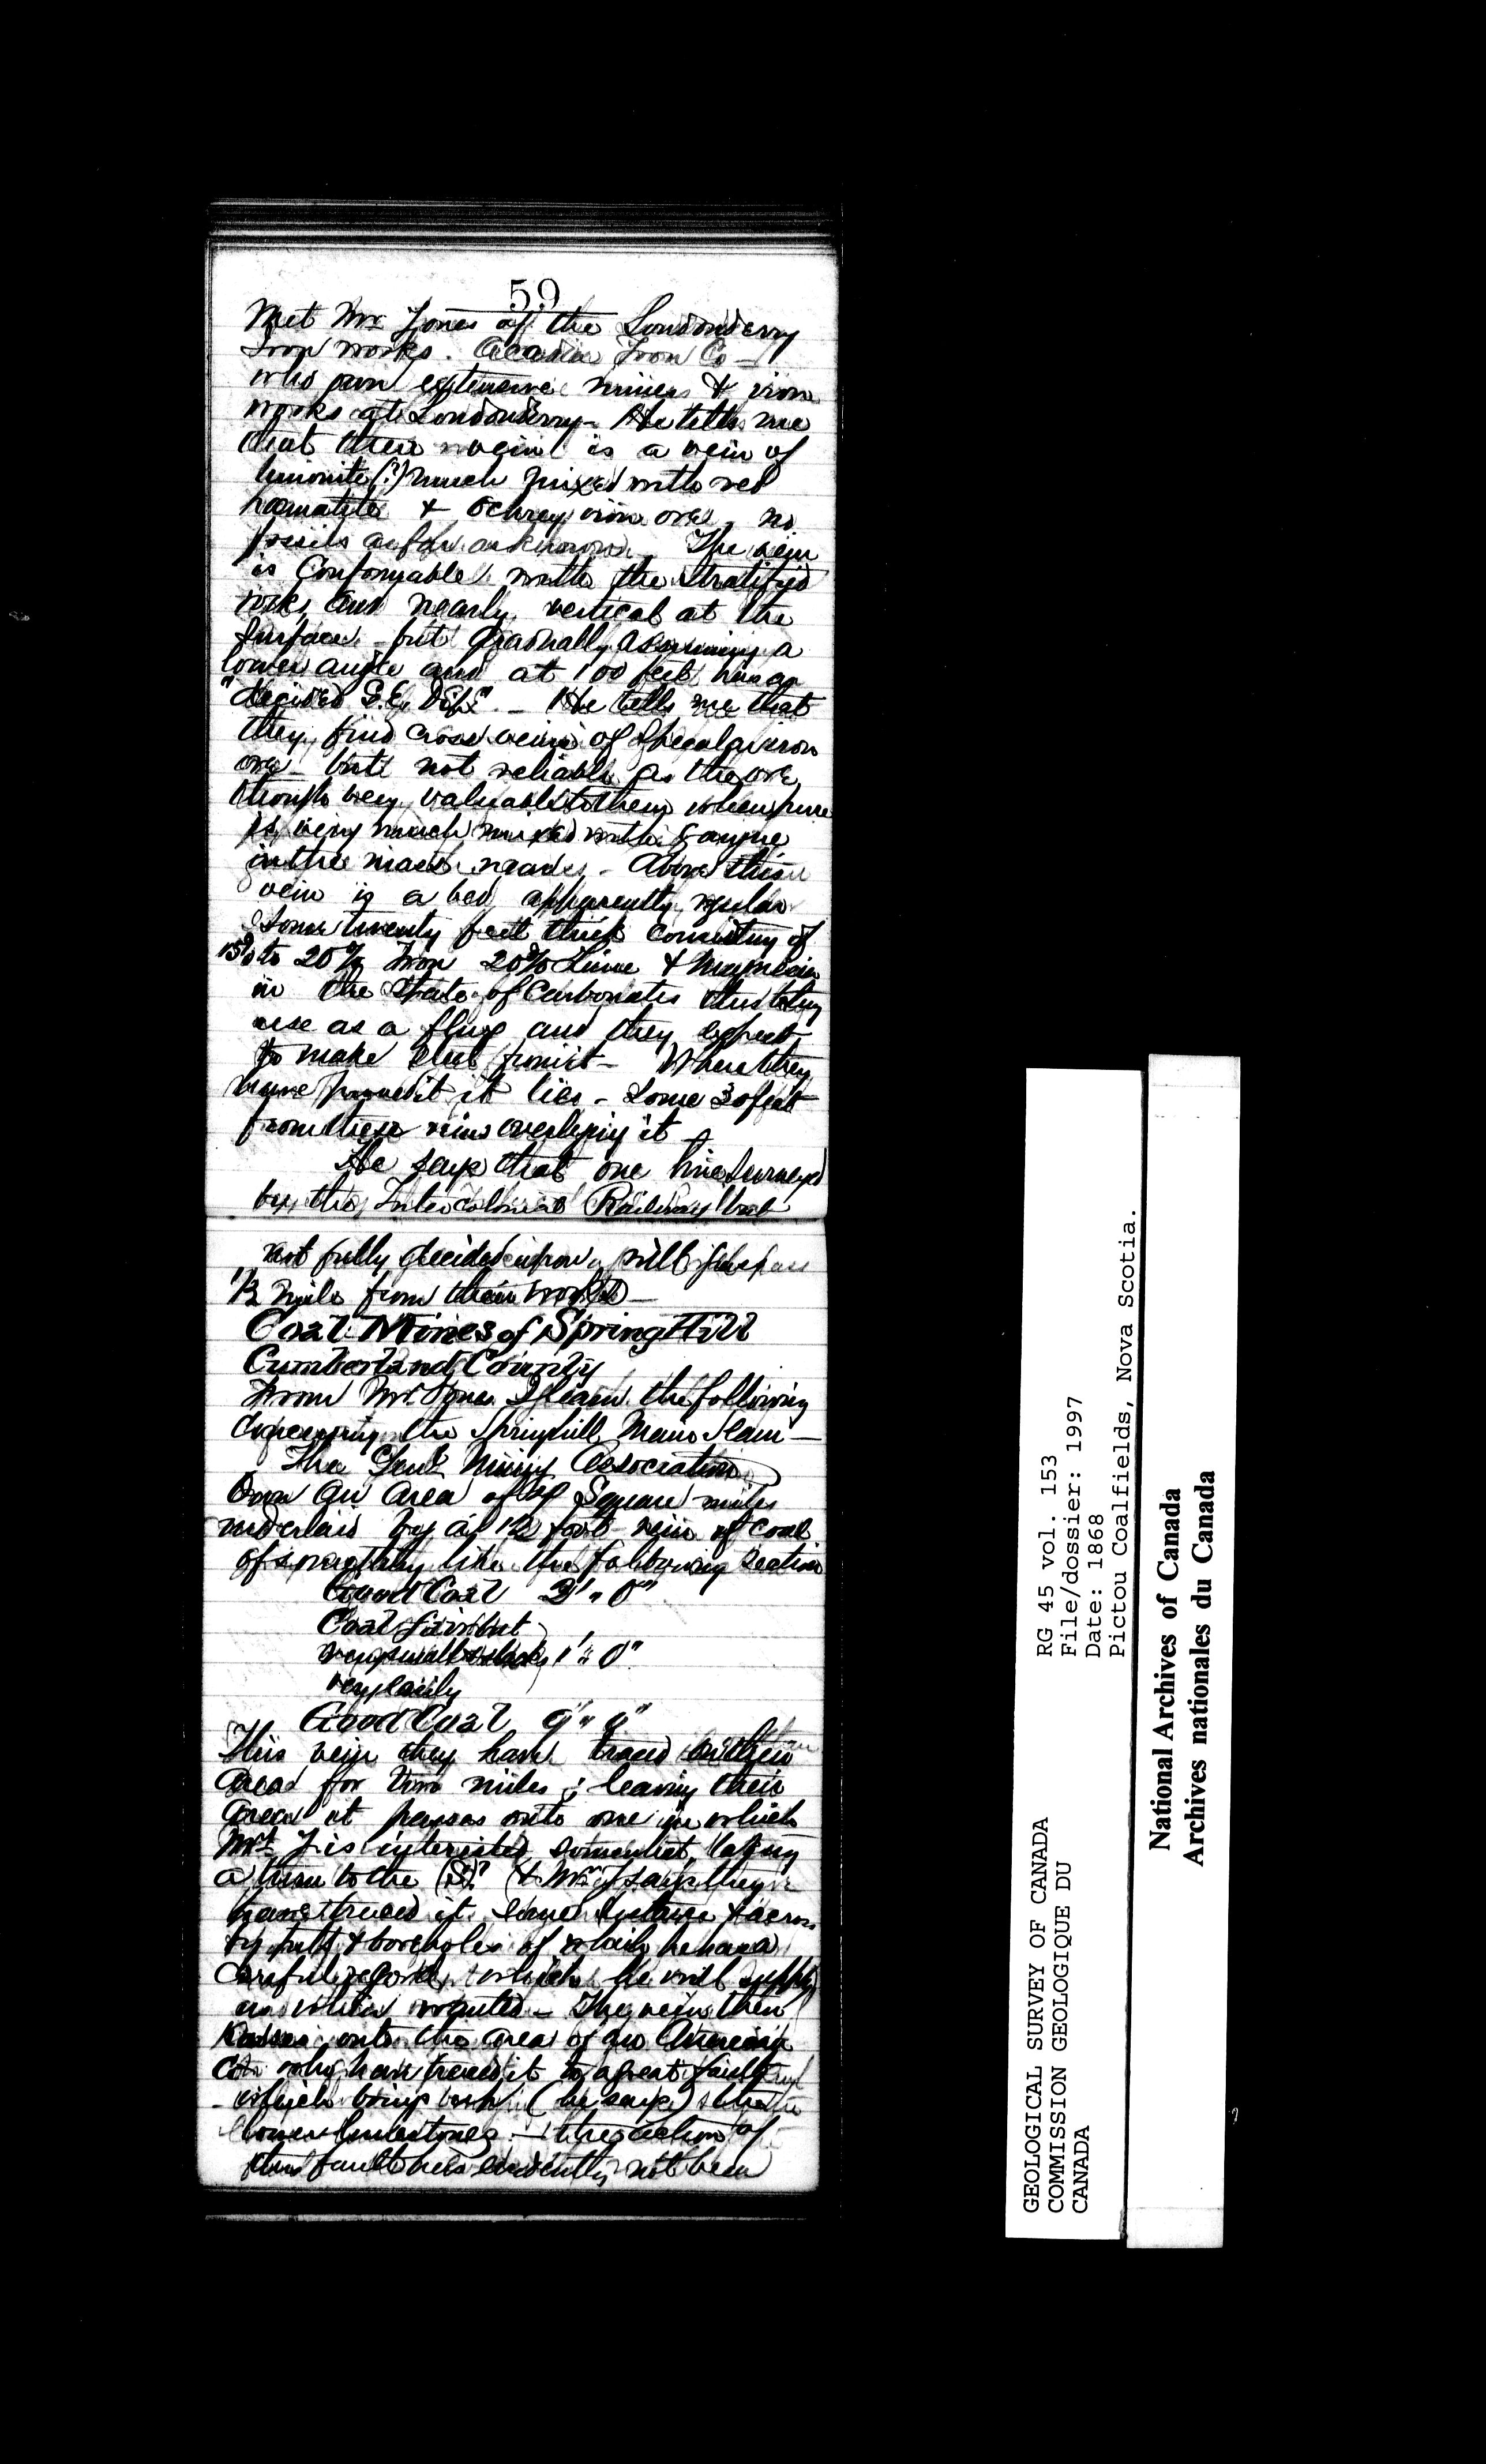 59
Met Mr Jones of the Londonderry
Iron works. Acadia Iron Co -
who own extensive mines & iron
works at Londonderry - He tells me
that their vein is a vein of
limonite (?) much mixed with red
haematite & ochrey iron ore, no
fossils as far as known. The vein
is Conformable with the stratified
rocks, and nearly vertical at the
surface - but gradually assuming a
lower angle and at 100 feet has a
"decided S.E. Dip". - He tells me that
they find cross veins of Specular iron
ore - but not reliable as the ore
though very valuable to them when pure
is very much mixed with gangue
in the most - Above this
vein is a bed apparently regular
some twenty feet thick consisting of
15% to 20% Iron 20% Lime & Magnesia
in the State of Carbonates this they
use as a flux and they expect
to make steel from it - Where they
have it it lies - some 30 feet
from these veins overlying it -
He says that one line surveyed
by the Intercolonial Railway but
not fully decided upon will pass
1/2 mile from their works -
Coal Mines of Spring Hill
Cumberland County
From Mr. Jones I learn the following
concerning the Springhill Main Seam -
The Genl Mining Association
Own an area of 4 Square miles
underlaid by a 12 foot vein of coal
of something like the following section
Good Coal 2' " 0"
Coal fair but
very small 1' " 0"
very
Good Coal 9' " 0"
This vein they have traced on their
area for two miles; leaving their
area it passes onto one in which
Mr J is interested somewhat, taking
a turn to the (S)? (& Mr J says they
have traced it some distance across
by pits & boreholes of which he has a
careful record, which he will supply
us when wanted - The vein then
passes onto the area of an American
Co. who have traced it to a great fault
which brings up (he says) the
lower limestones - the action of
this fault has evidently not been
GEOLOGICAL SURVEY OF CANADA
COMMISSION GEOLOGIQUE DU
CANADA
RG 45 vol. 153
File/dossier: 1997
Date: 1868
Pictou Coalfields, Nova Scotia.
National Archives of Canada
Archives nationales du Canada